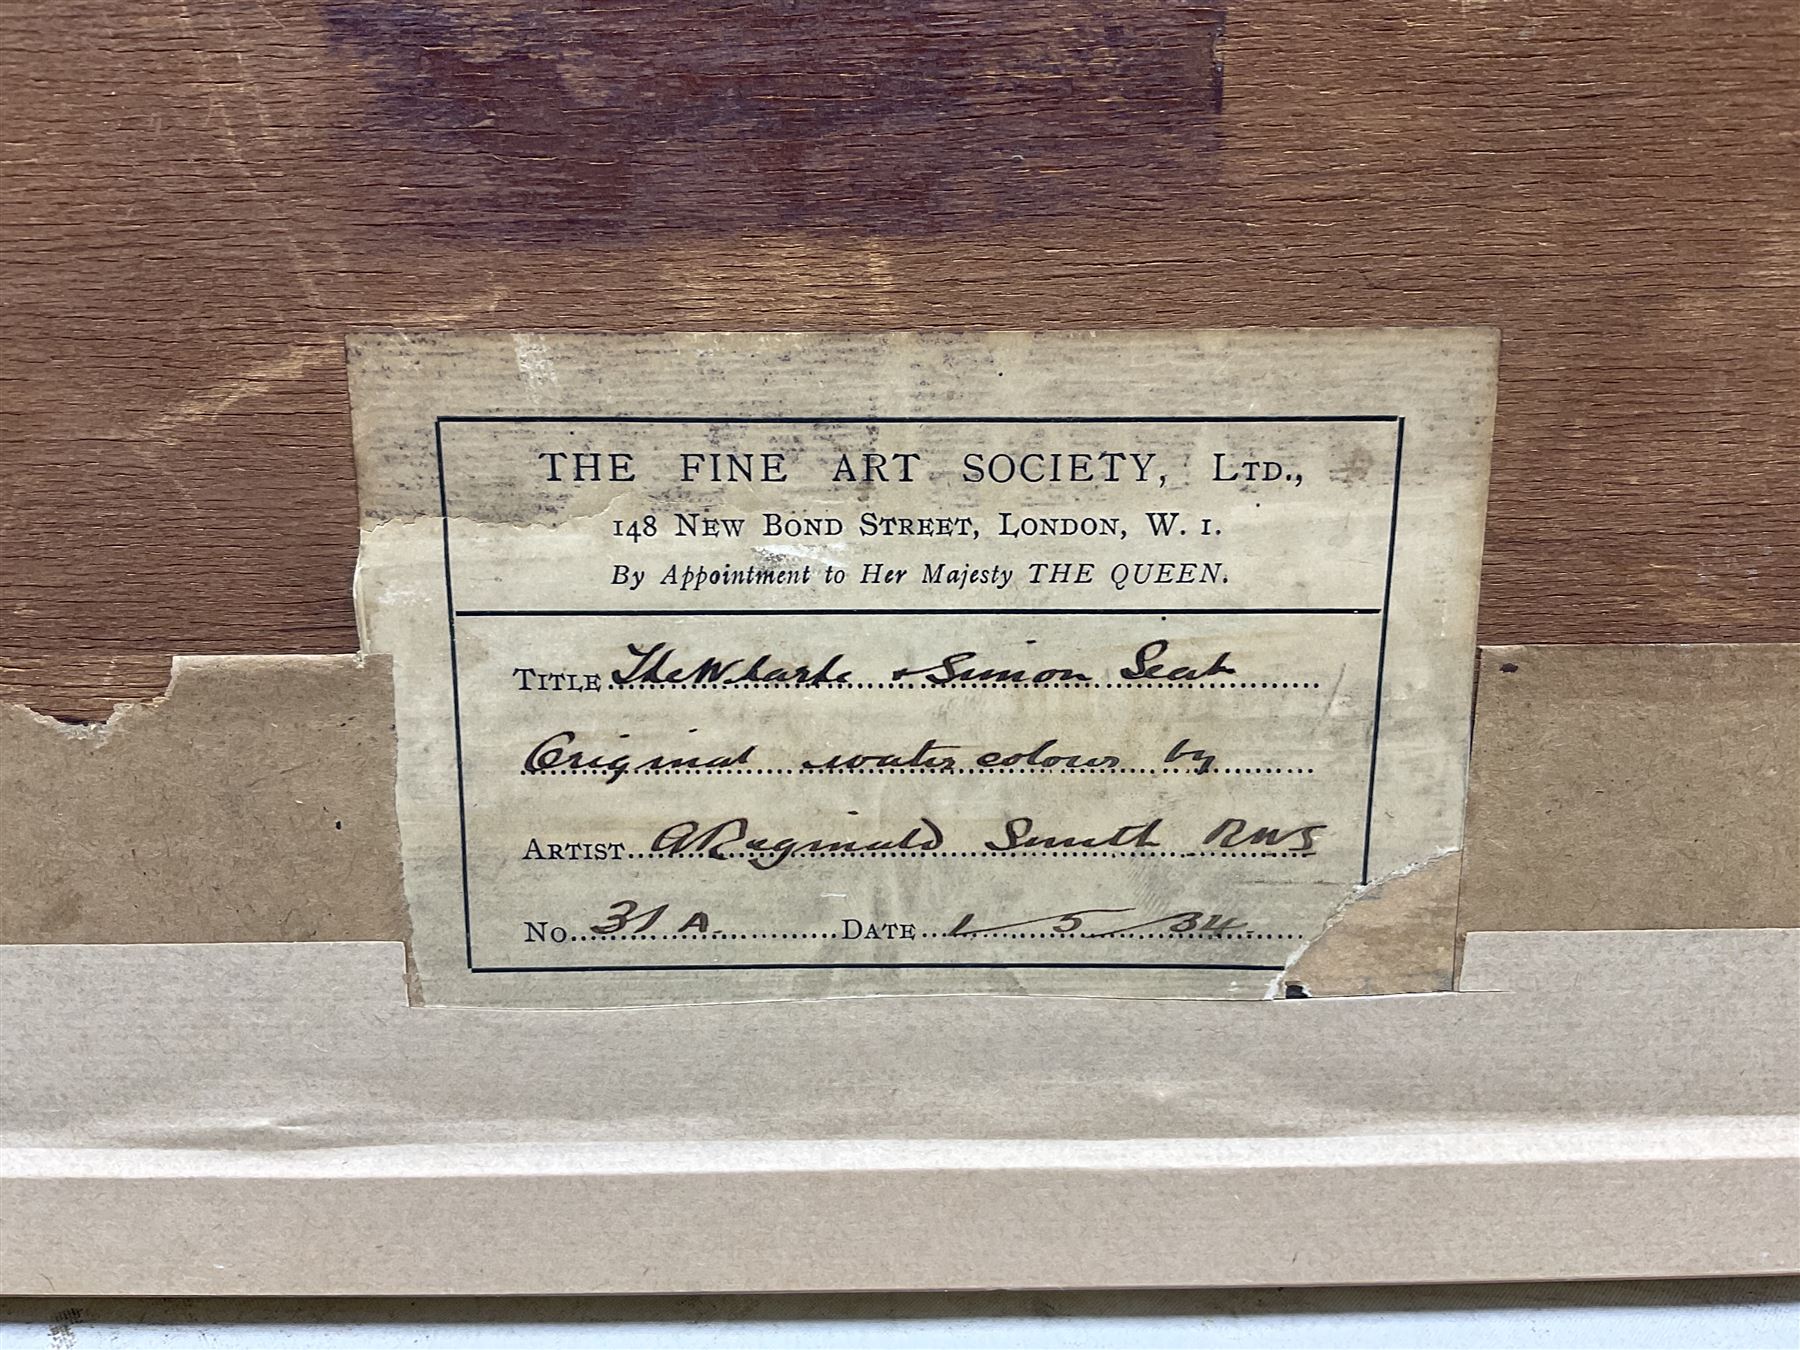 THE FINE ART SOCIETY, LTD.,
148 NEW BOND STREET, LONDON, W. 1.
By Appointment to Her Majesty THE QUEEN.
TITLE The Wharfe & Simon Seat
Original water colour by
ARTIST A Reginald Smith RWS
NO. 31 A. DATE 1/5/34.